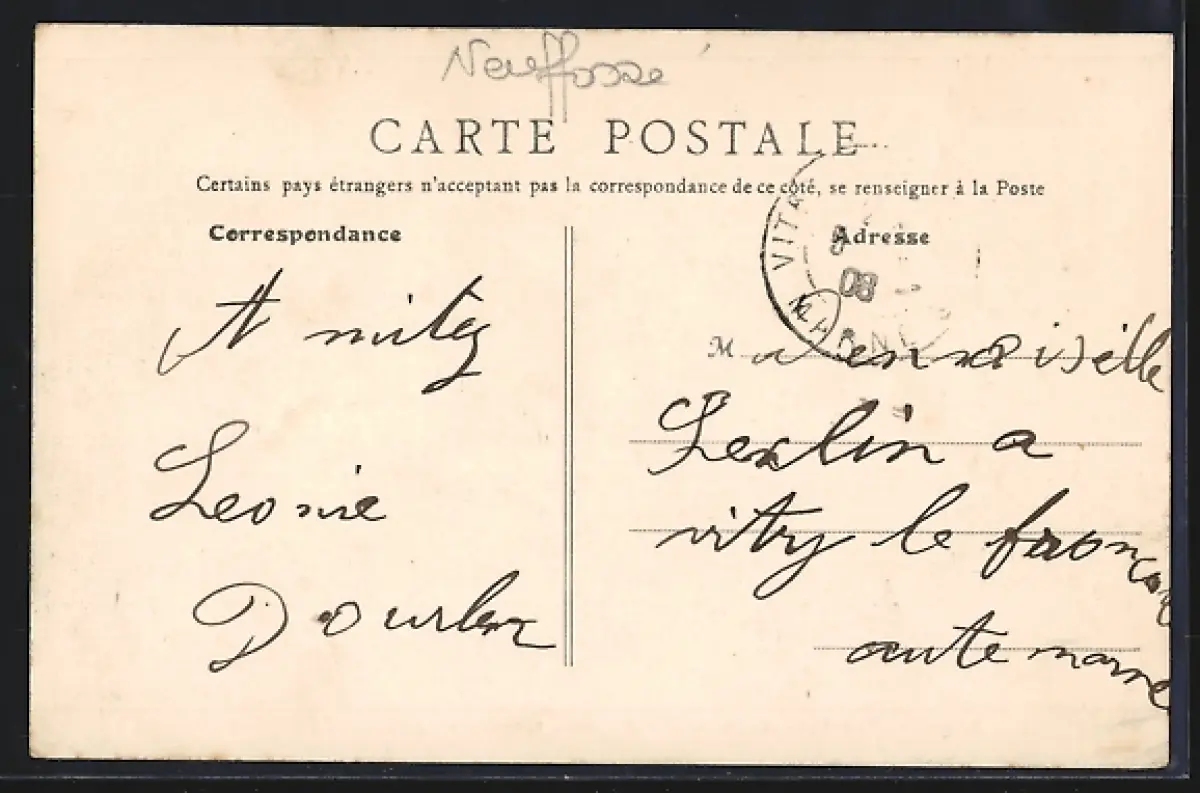 Neuffossé
CARTE POSTALE
Certains pays étrangers n'acceptant pas la correspondance de ce côté, se renseigner à la Poste
Correspondance
Adresse
VITR
08
Amitiés
Leonie
Mademoiselle
a
vitry le françois
aute marne